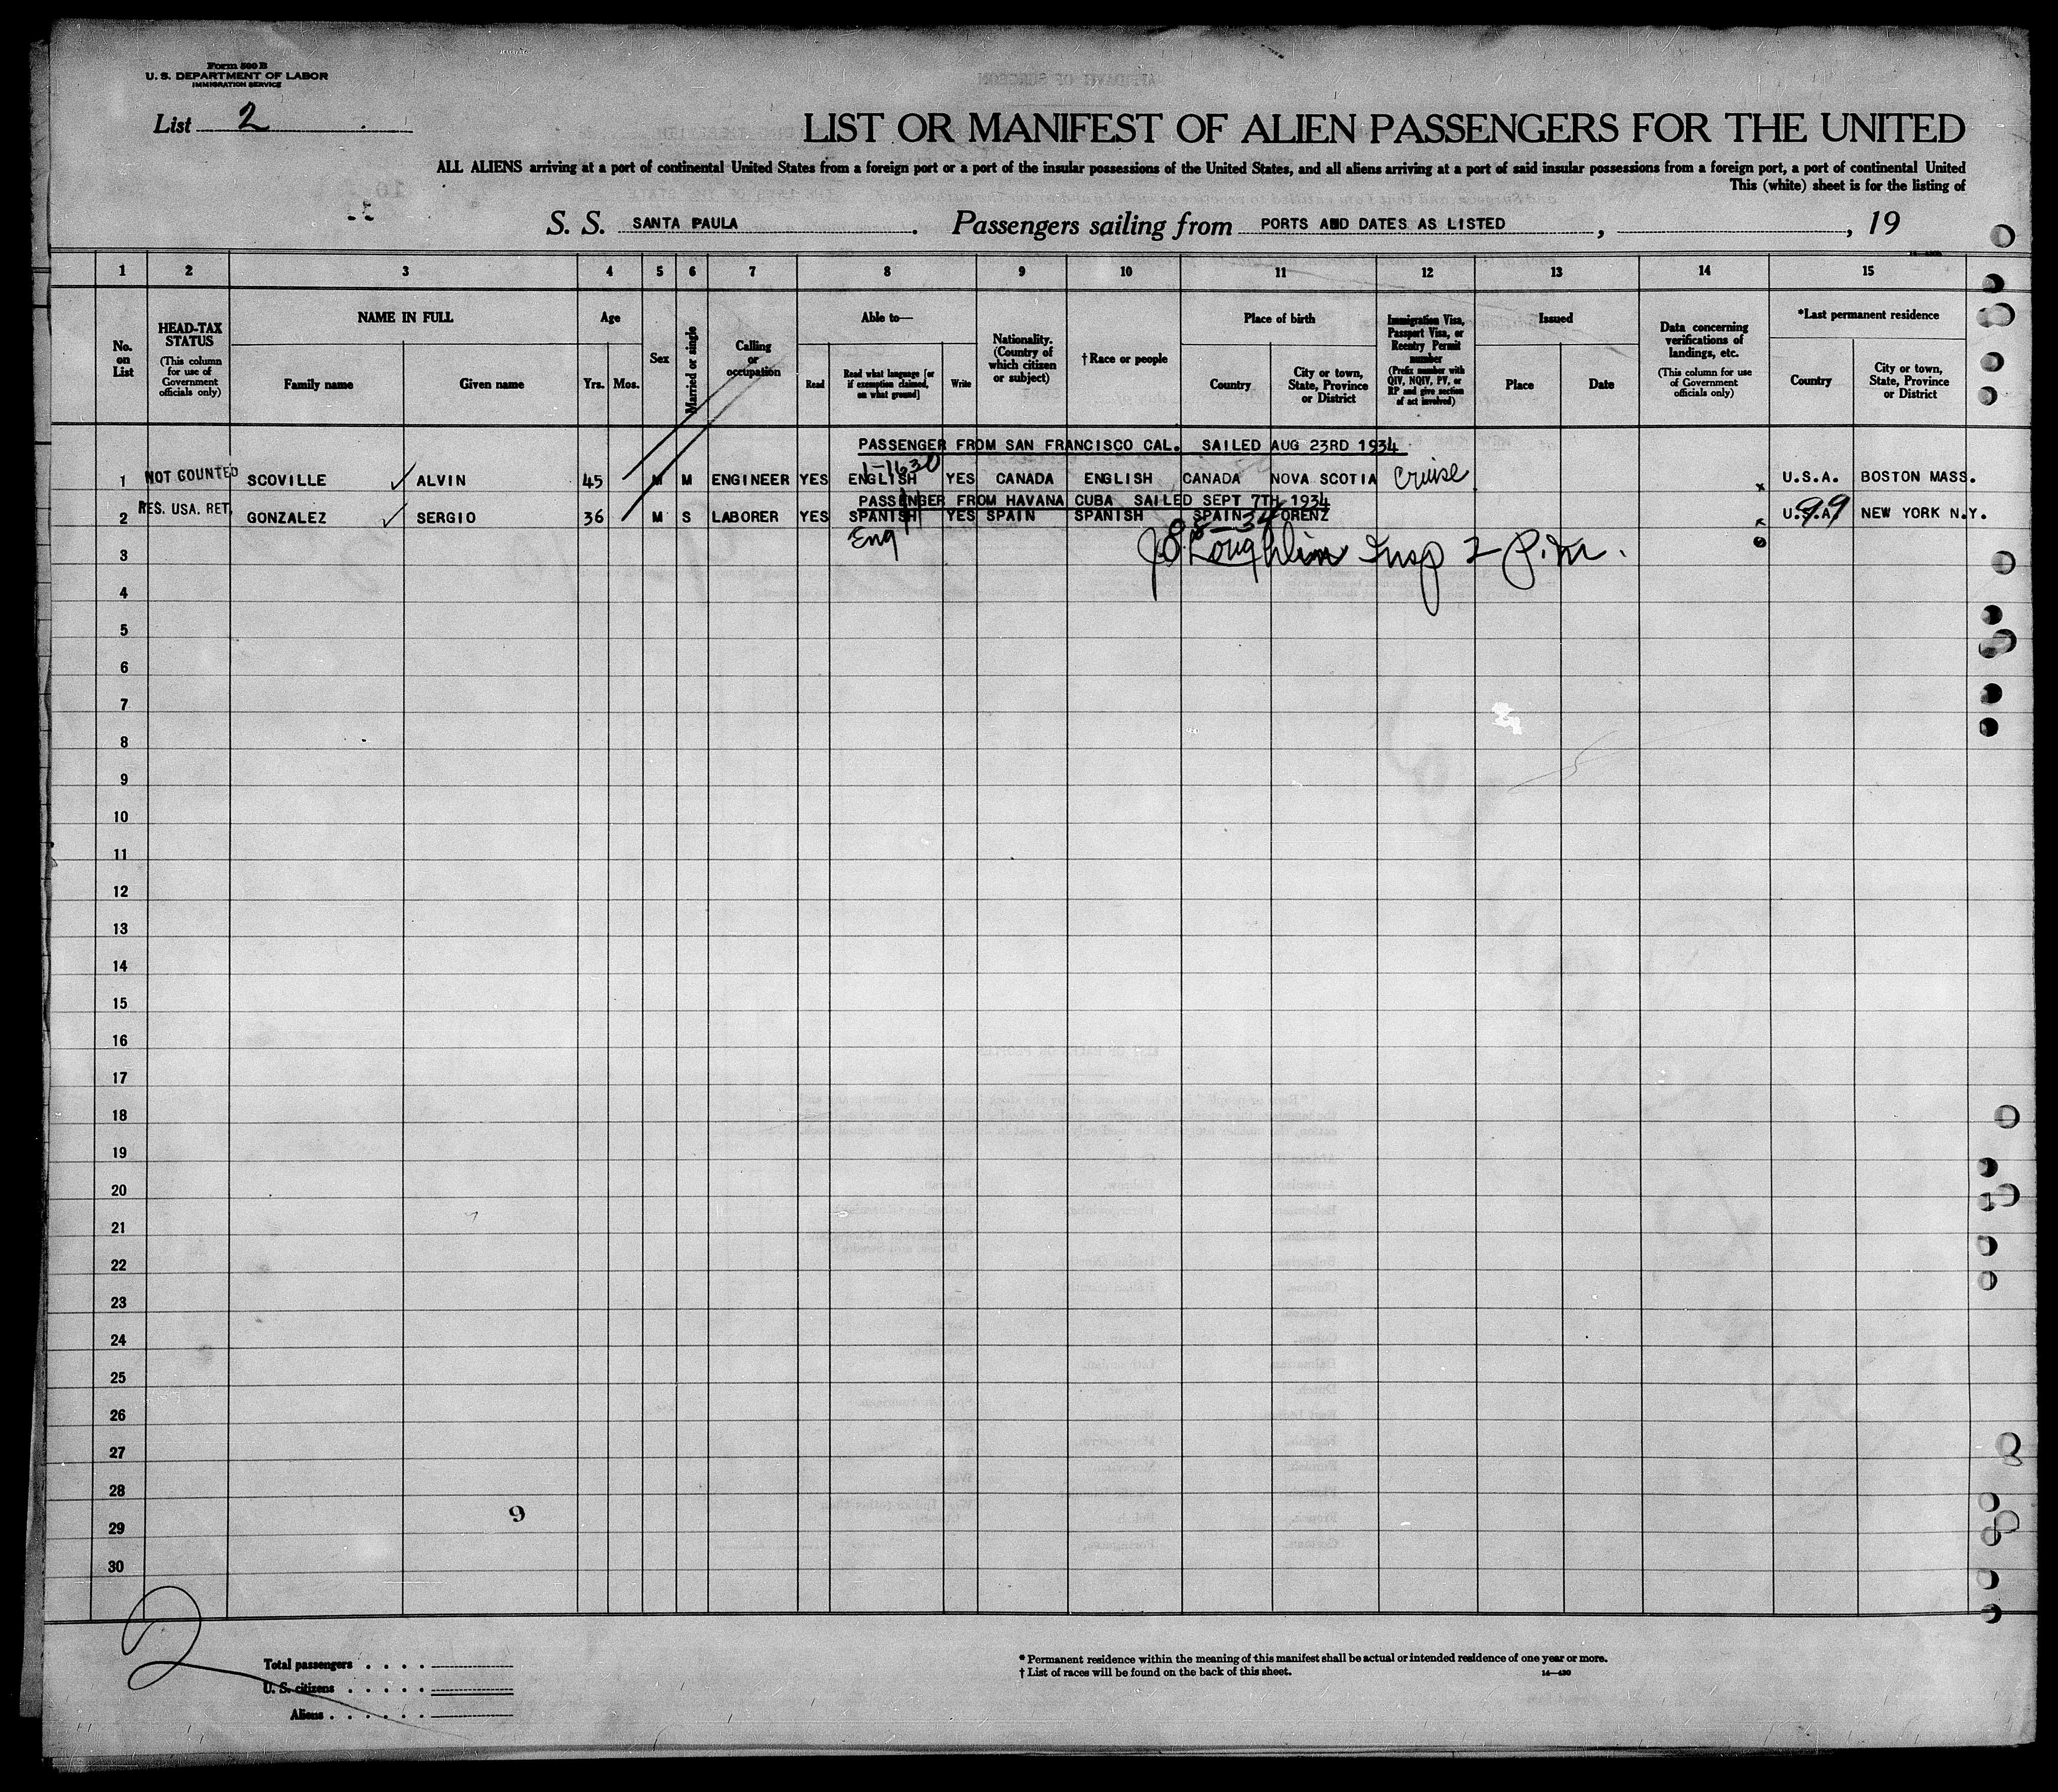 Form 500 B
U. S. DEPARTMENT OF LABOR
IMMIGRATION SERVICE
List 2
LIST OR MANIFEST OF ALIEN PASSENGERS FOR THE UNITED
ALL ALIENS arriving at a port of continental United States from a foreign port or a port of the insular possessions of the United States, and all aliens arriving at a port of said insular possessions from a foreign port, a port of continental United
This (white) sheet is for the listing of
S. S. SANTA PAULA. Passengers sailing from PORTS AND DATES AS LISTED, , 19
1 2 3 4 5 6 7 8 9 10 11 12 13 14 15
No. on List
HEAD-TAX STATUS (This column for use of Government officials only)
NAME IN FULL
Family name Given name
Age
Yrs. Mos.
Sex
Married or single
Calling or occupation
Able to—
Read Read what language [or if exemption claimed, on what ground] Write
Nationality. (Country of which citizen or subject)
†Race or people
Place of birth
Country City or town, State, Province or District
Immigration Visa, Passport Visa, or Reentry Permit number (Prefix number with QIV, NQIV, PV, or RP and give section of act involved)
Issued
Place Date
Data concerning verifications of landings, etc. (This column for use of Government officials only)
*Last permanent residence
Country City or town, State, Province or District
PASSENGER FROM SAN FRANCISCO CAL. SAILED AUG 23RD 1934
1-1630
1 NOT COUNTED SCOVILLE ALVIN 45 M M ENGINEER YES ENGLISH YES CANADA ENGLISH CANADA NOVA SCOTIA Cruise U.S.A. BOSTON MASS.
PASSENGER FROM HAVANA CUBA SAILED SEPT 7TH 1934
2 RES. USA. RET. GONZALEZ SERGIO 36 M S LABORER YES SPANISH YES SPAIN SPANISH SPAIN LORENZ U.S.A. 99 NEW YORK N.Y.
Eng
Loughlin Insp 2 P.M.
3
4
5
6
7
8
9
10
11
12
13
14
15
16
17
18
19
20
21
22
23
24
25
26
27
28
9
29
30
2
Total passengers
U. S. citizens
Aliens
* Permanent residence within the meaning of this manifest shall be actual or intended residence of one year or more.
† List of races will be found on the back of this sheet. 14—430